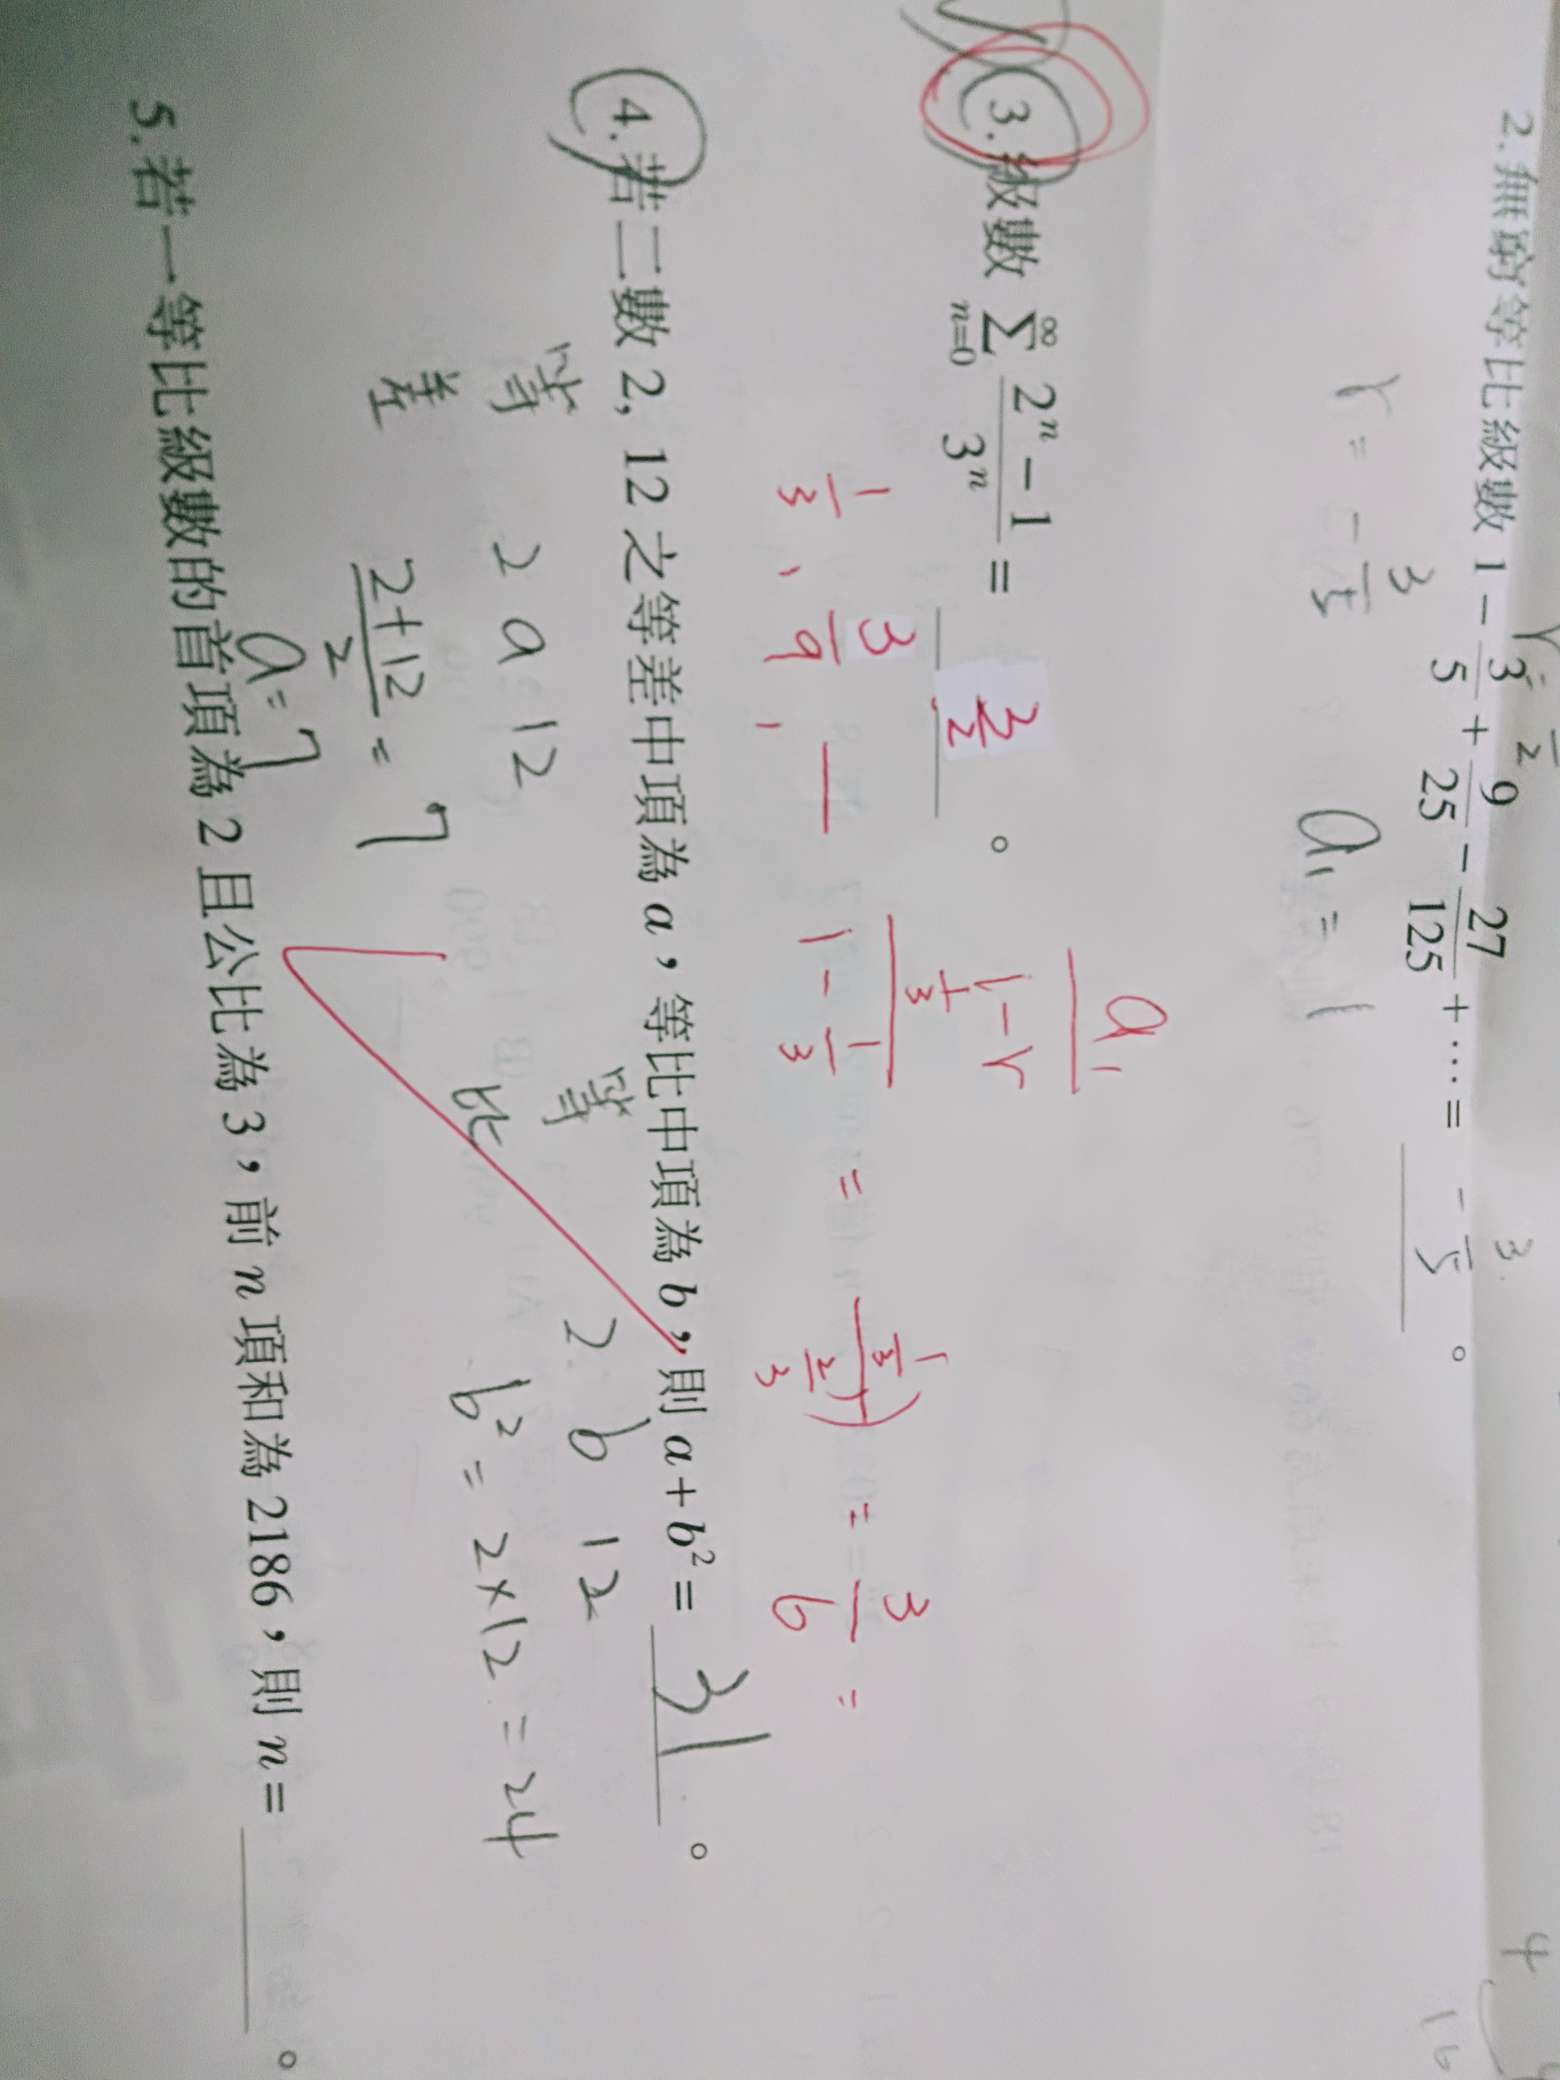 2. 無窮等比級數 1 - 3/5 + 9/25 - 27/125 + ⋯ = - 3/5 。
r = - 3/5 a₁ = 1
3. 級數 ∑_{n=0}^{∞} (2ⁿ - 1)/3ⁿ = 3/2 。
a₁/(1-r)
1/3 , 3/9 , — (1/3)/(1 - 1/3) = (1/3)/(2/3) = 3/6 =
4. 若二數 2, 12 之等差中項為 a,等比中項為 b,則 a + b² = 31 。
等差 2 a 12
(2+12)/2 = 7
a = 7
等比 2 b 12
b² = 2×12 = 24
5. 若一等比級數的首項為 2 且公比為 3,前 n 項和為 2186,則 n = ____ 。